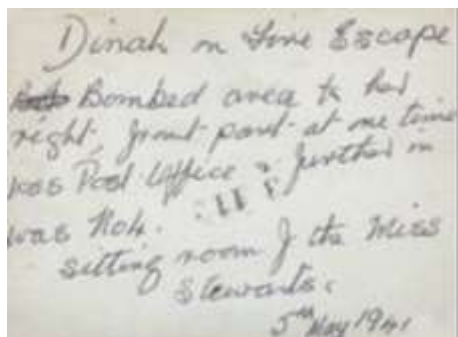 Dinah on Fire Escape
Bombed area to her
right, front part at one time
was Post Office & further in
was No4.
sitting room of the Miss
Stewarts.
5th May 1941